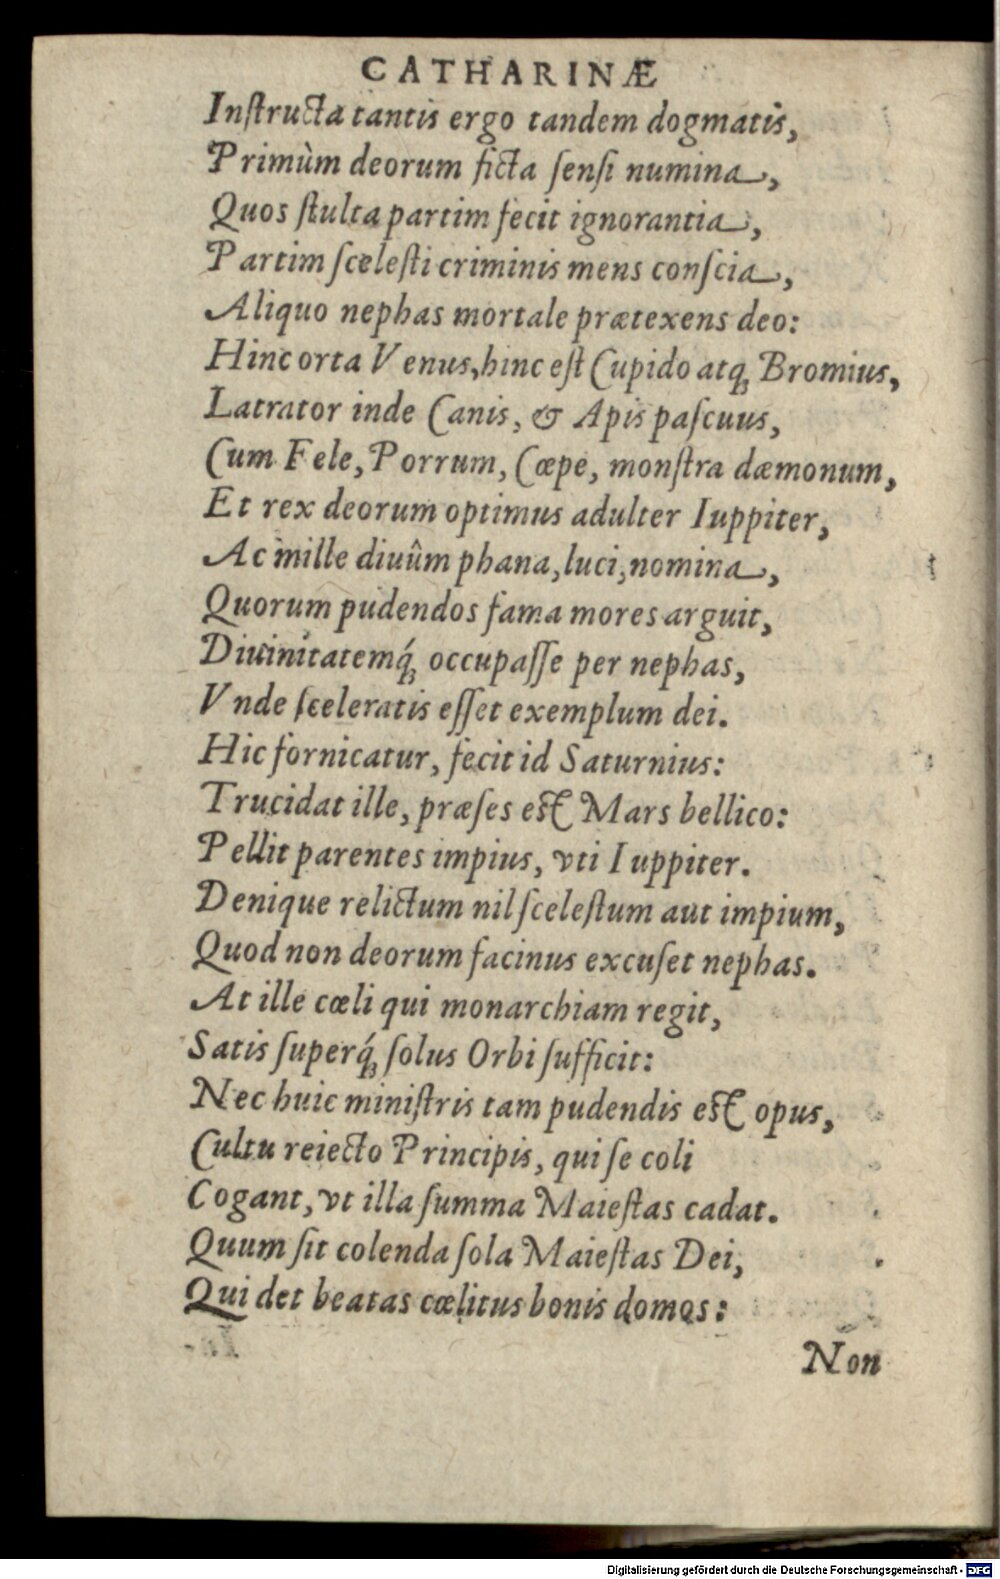 CATHARINÆ
Inſtructa tantis ergo tandem dogmatis,
Primùm deorum ficta ſenſi numina,
Quos ſtulta partim fecit ignorantia,
Partim ſceleſti criminis mens conſcia,
Aliquo nephas mortale prætexens deo:
Hinc orta Venus, hinc eſt Cupido atq; Bromius,
Latrator inde Canis, & Apis paſcuus,
Cum Fele, Porrum, Cœpe, monſtra dæmonum,
Et rex deorum optimus adulter Iuppiter,
Ac mille diuûm phana, luci, nomina,
Quorum pudendos fama mores arguit,
Diuinitatemq́; occupaſſe per nephas,
Vnde ſceleratis eſſet exemplum dei.
Hic fornicatur, fecit id Saturnius:
Trucidat ille, præſes eſt Mars bellico:
Pellit parentes impius, vti Iuppiter.
Denique relictum nil ſceleſtum aut impium,
Quod non deorum facinus excuſet nephas.
At ille cœli qui monarchiam regit,
Satis ſuperq́; ſolus Orbi ſufficit:
Nec huic miniſtris tam pudendis eſt opus,
Cultu reiecto Principis, qui ſe coli
Cogant, vt illa ſumma Maieſtas cadat.
Quum ſit colenda ſola Maieſtas Dei,
Qui det beatas cœlitus bonis domos:
Non
Digitalisierung gefördert durch die Deutsche Forschungsgemeinschaft - DFG